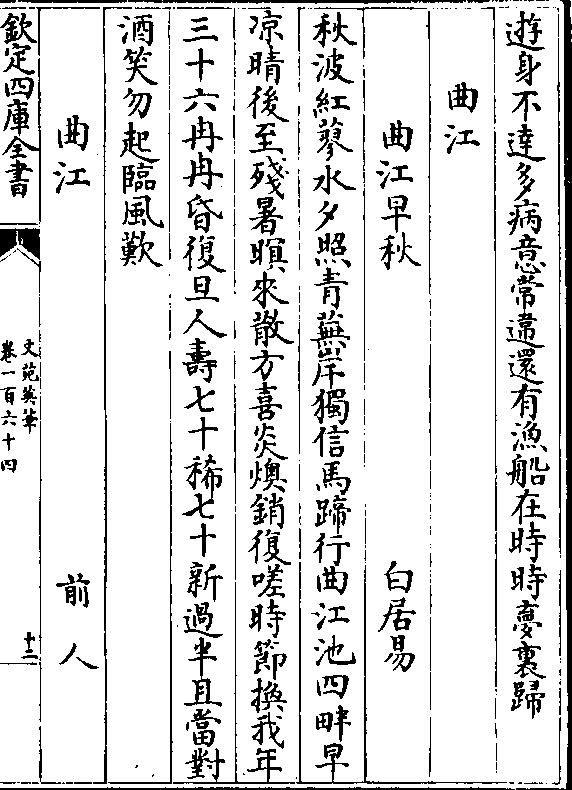 遊身不達多病意常違還有漁船在時時夢裏歸
曲江
曲江早秋 白居易
秋波紅蓼水夕照青蕪岸獨信馬蹄行曲江池四畔早
凉晴後至殘暑暝來散方喜炎燠銷復嗟時節換我年
三十六冉冉昏復旦人壽七十稀七十新過半且當對
酒笑勿起臨風歎
曲江 前人
欽定四庫全書
文苑英華
卷一百六十四
十二